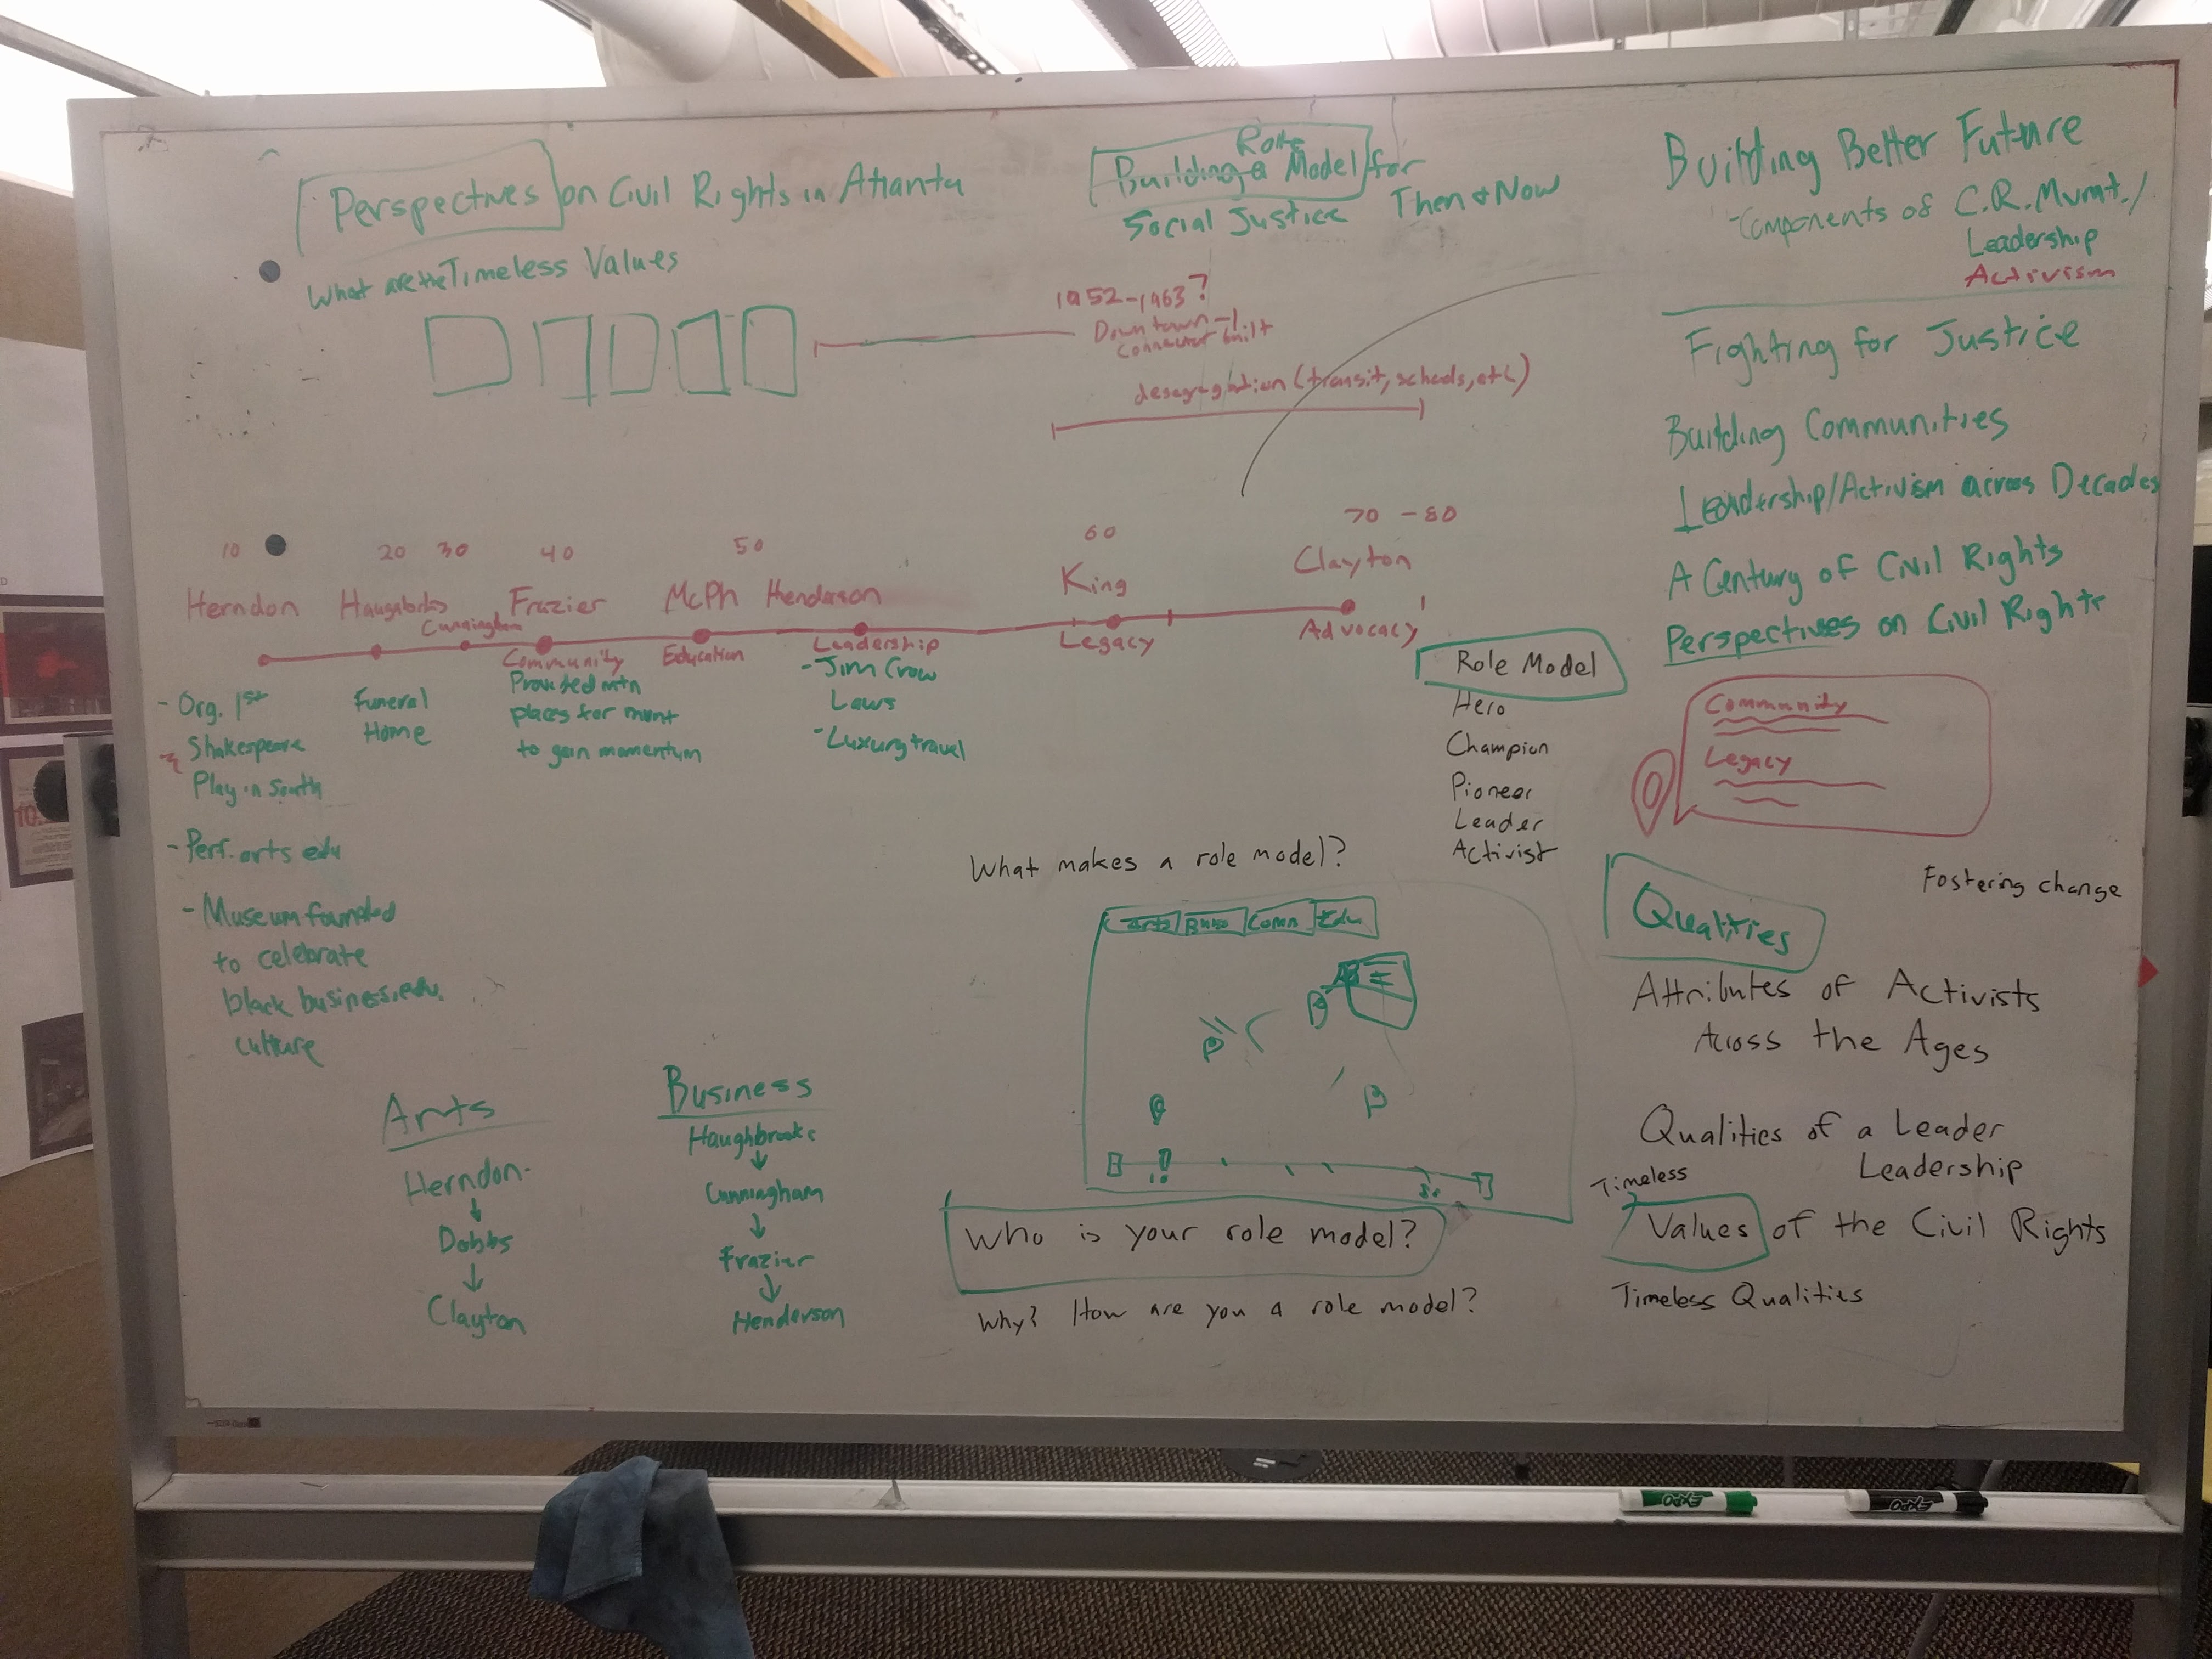 Perspectives on Civil Rights in Atlanta
What are the Timeless Values
Role
Building a Model for
Social Justice Then & Now
1952-1963?
Downtown
Connector built
desegragation (transit, schools, etc)
10 20 30 40 50 60 70 - 80
Herndon Haugabrooks Cunningham Frazier McPh Henderson King Clayton
Community Education Leadership Legacy Advocacy
- Org. 1st
Shakespeare
Play in South
- Perf. arts edu
- Museum founded
to celebrate
black business, edu,
culture
Funeral
Home
Provided mtn
places for mvmt
to gain momentum
- Jim Crow
Laws
- Luxury travel
Arts
Herndon
↓
Dobbs
↓
Clayton
Business
Haughbrooks
↓
Cunningham
↓
Frazier
↓
Henderson
What makes a role model?
Arts Busn Comm Edu
Who is your role model?
Why? How are you a role model?
Role Model
Hero
Champion
Pioneer
Leader
Activist
Building Better Future
- Components of C.R. Mvmt./
Leadership
Activism
Fighting for Justice
Building Communities
Leadership/Activism across Decades
A Century of Civil Rights
Perspectives on Civil Rights
Community
Legacy
Fostering change
Qualities
Attributes of Activists
Across the Ages
Qualities of a Leader
Leadership
Timeless
Values of the Civil Rights
Timeless Qualities
EXPO
EXPO